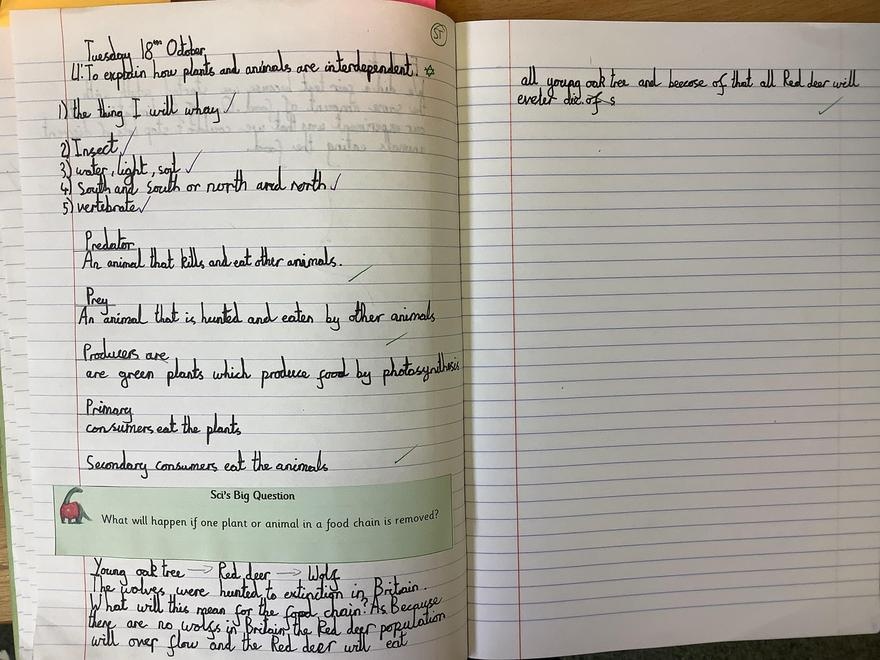 ST
Tuesday 18th October
LI: To explain how plants and animals are interdependent.
1) the thing I will whay
2) Insect
3) water, light, soil
4) South and South or north and north
5) vertebrate
Predator
An animal that kills and eat other animals.
Prey
An animal that is hunted and eaten by other animals
Producers are
are green plants which produce food by photosynthesis
Primary
consumers eat the plants
Secondary consumers eat the animals
Sci's Big Question
What will happen if one plant or animal in a food chain is removed?
Young oak tree → Red deer → Wolf
The wolves were hunted to extinction in Britain.
What will this mean for the food chain? As Because
there are no wolfs in Britain the Red deer population
will over flow and the Red deer will eat
all young oak tree and becose of that all Red deer will
eveler die of s